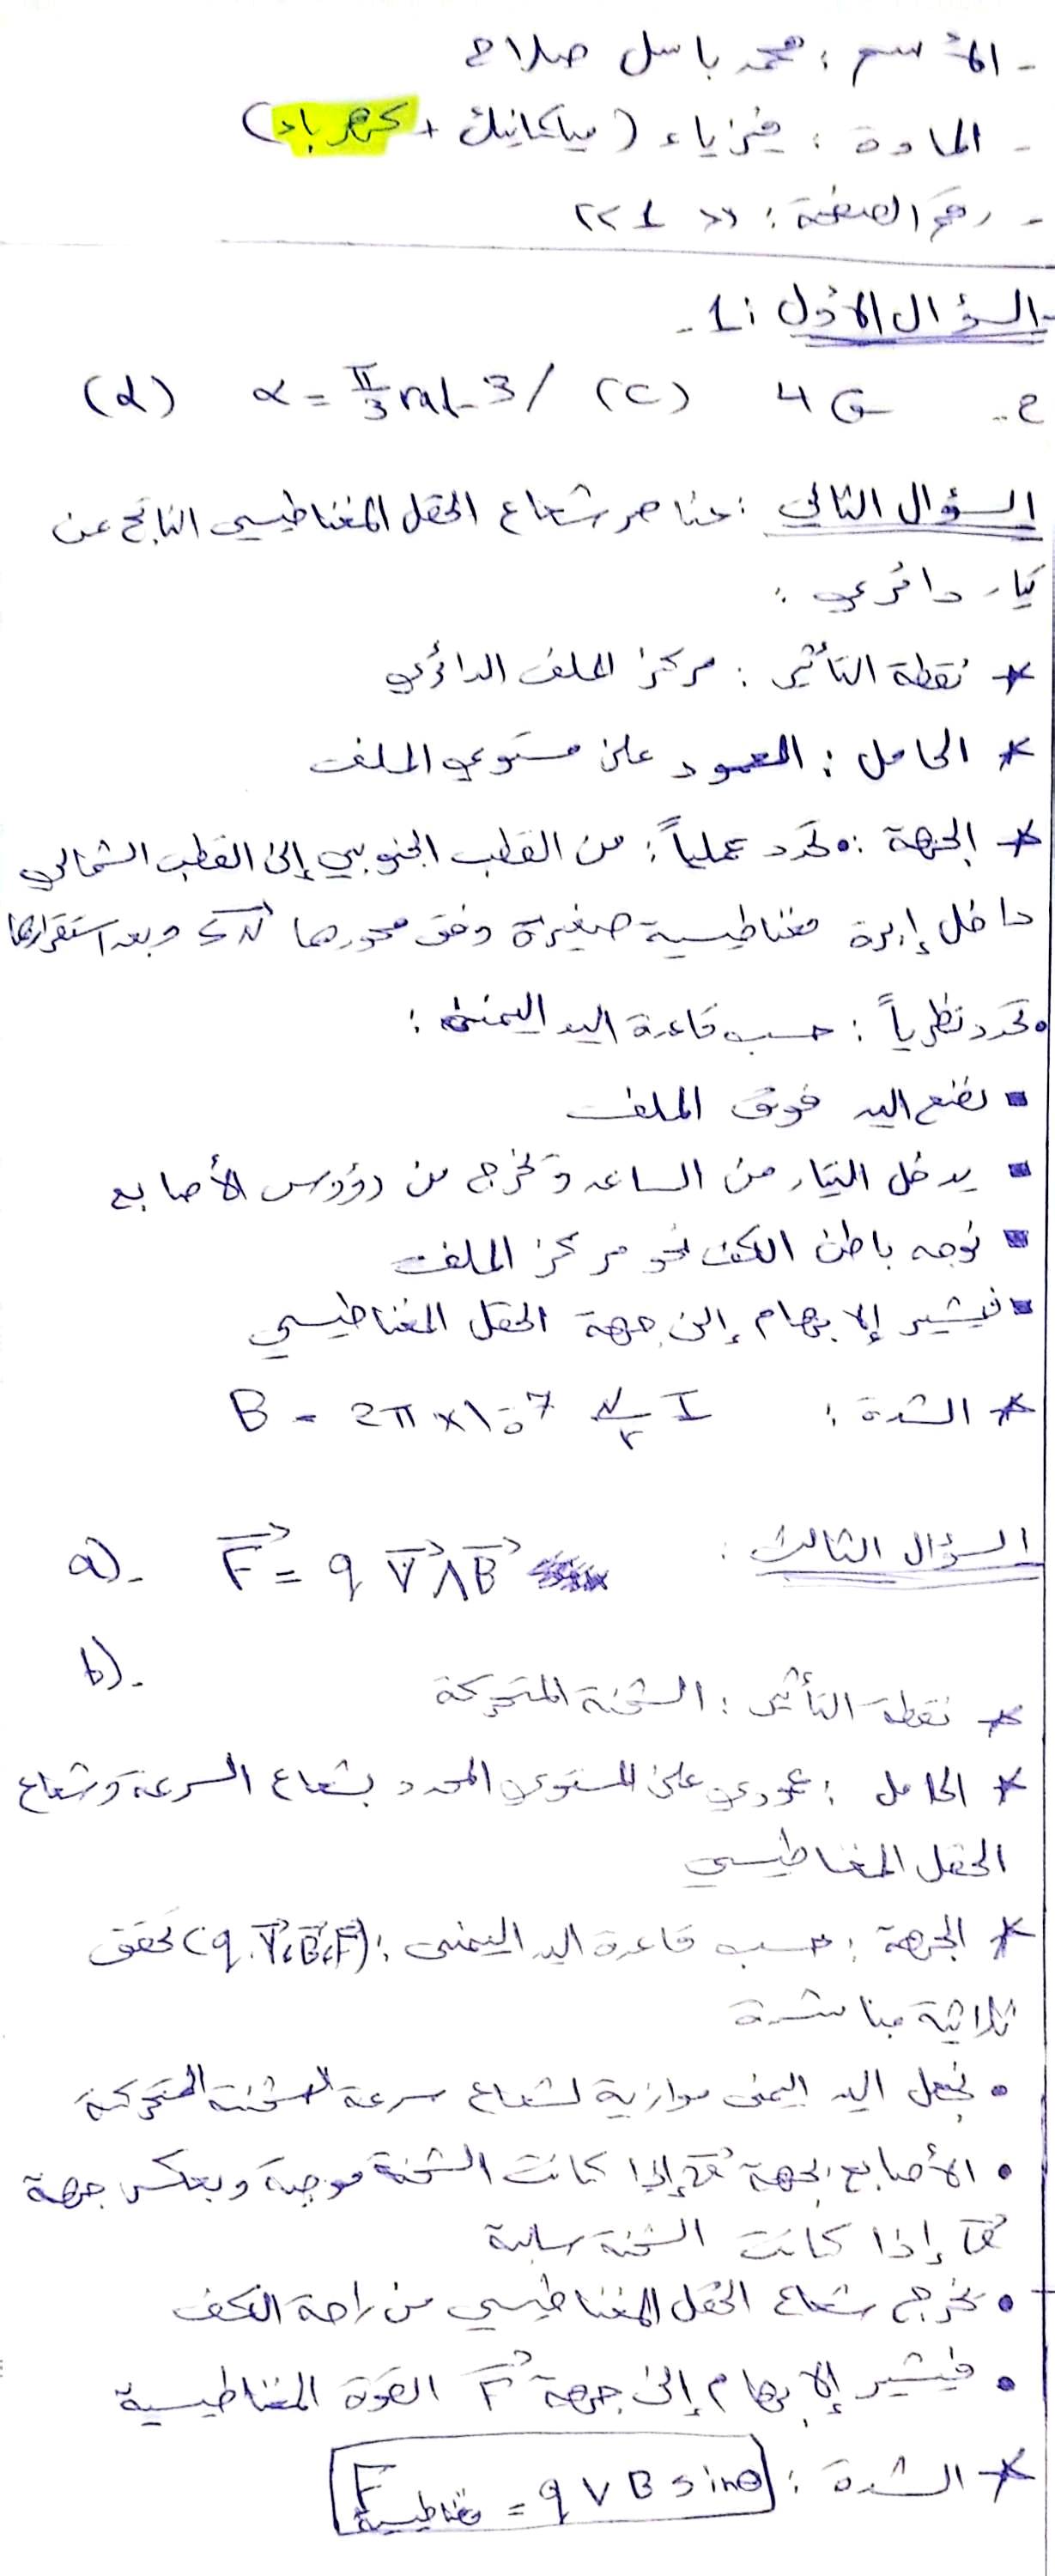 - الأسم : محمد باسل صلاح
- المادة : فيزياء (ميكانيك + كهرباء)
- رقم الصفحة : << 1 >>
السؤال الأول : 1-
2- 4G (C) / 3- α = π/3 rad (d)
السؤال الثاني : عناصر شعاع الحقل المغناطيسي الناتج عن
تيار دائري :
* نقطة التأثير : مركز الملف الدائري
* الحامل : العمود على مستوي الملف
* الجهة : • تحدد عملياً : من القطب الجنوبي إلى القطب الشمالي
داخل إبرة مغناطيسية صغيرة وفق محورها وبعد استقرارها
• تحدد نظرياً : حسب قاعدة اليد اليمنى :
▪ نضع اليد فوق الملف
▪ يدخل التيار من الساعد وتخرج من رؤوس الأصابع
▪ نوجه باطن الكف نحو مركز الملف
▪ فيشير الإبهام إلى جهة الحقل المغناطيسي
* الشدة : B = 2π×10⁻⁷ N/r I
السؤال الثالث : a)- F⃗ = q V⃗ Λ B⃗
b)-
* نقطة التأثير : الشحنة المتحركة
* الحامل : عمودي على المستوي المحدد بشعاع السرعة وشعاع
الحقل المغناطيسي
* الجهة : حسب قاعدة اليد اليمنى : (q.V⃗,B⃗,F⃗) تحقق
ثلاثية مباشرة
• نجعل اليد اليمنى موازية لشعاع سرعة الشحنة المتحركة
• الأصابع بجهة v⃗ إذا كانت الشحنة موجبة وبعكس جهة
v⃗ إذا كانت الشحنة سالبة
• يخرج شعاع الحقل المغناطيسي من راحة الكف
• فيشير الإبهام إلى جهة F⃗ القوة المغناطيسية
* الشدة : F مغناطيسية = q V B sinθ